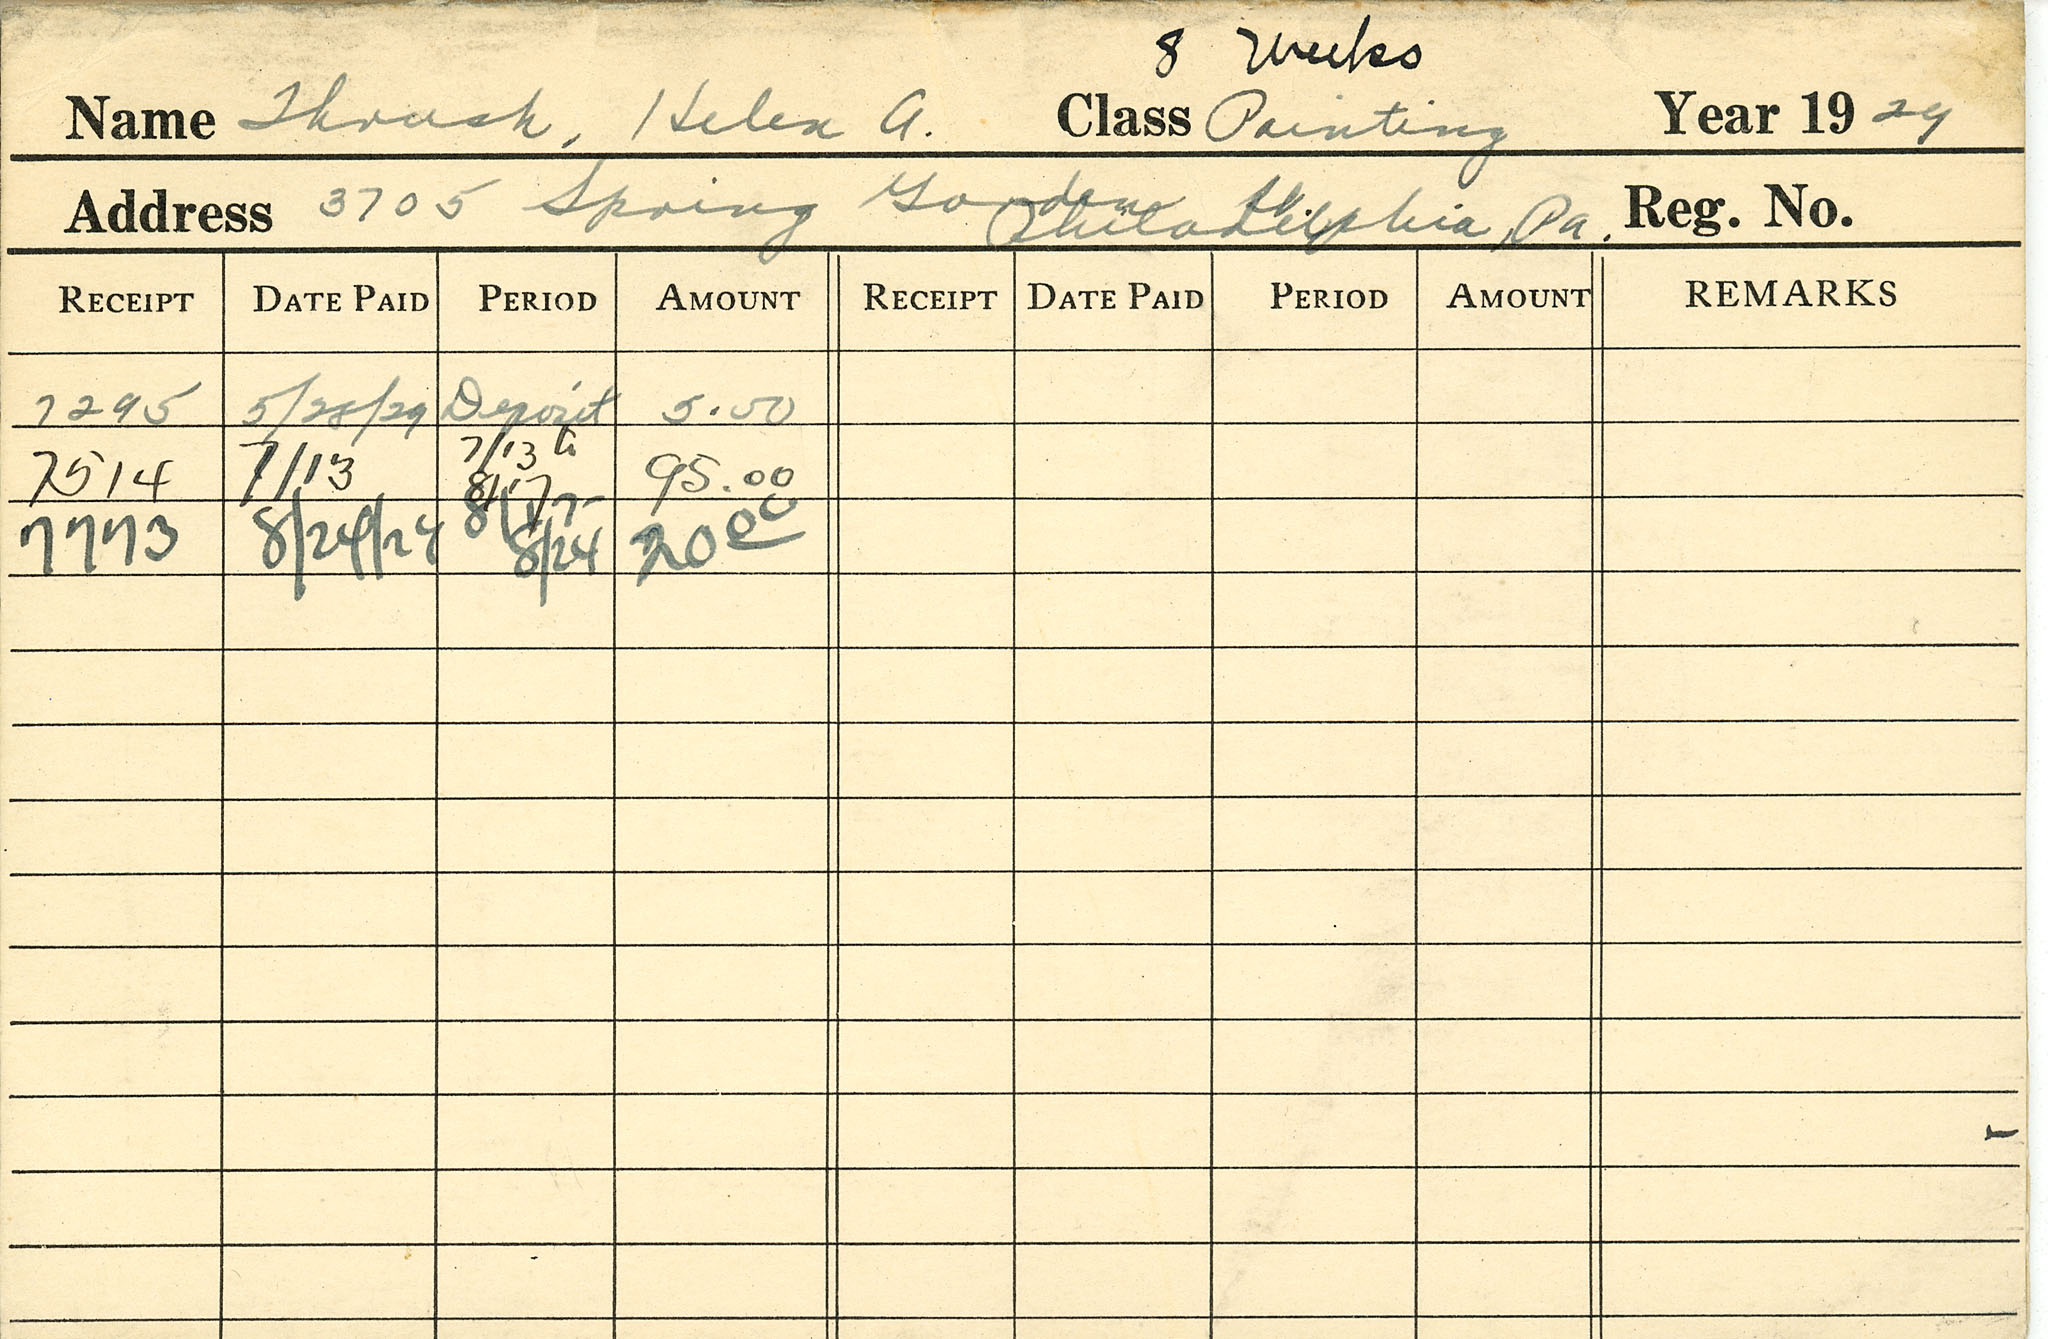 8 Weeks
Name Thrash, Helen A. Class Painting Year 19 29
Address 3705 Spring Garden St. Philadelphia, Pa. Reg. No.
RECEIPT DATE PAID PERIOD AMOUNT RECEIPT DATE PAID PERIOD AMOUNT REMARKS
7295 5/28/29 Deposit 5.00
7514 7/13 7/13 to 8/17 95.00
7773 8/24/29 8/17- 8/24 20 00